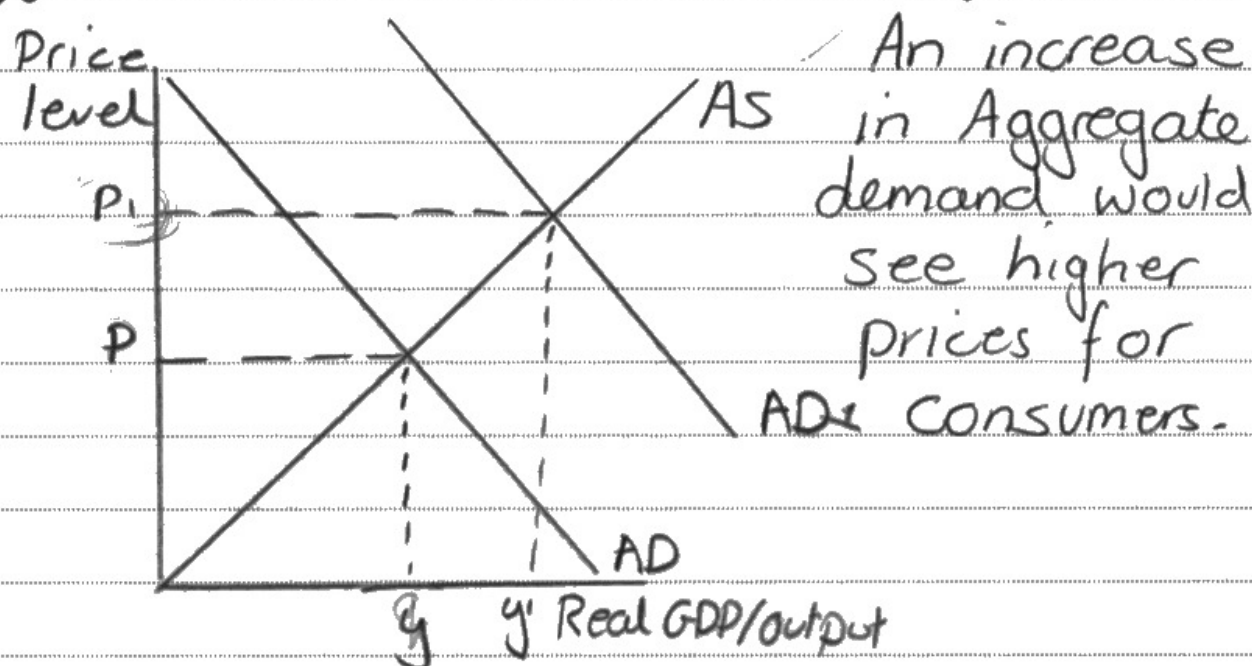 Price
level
P1
P
AS
AD1
AD
y
y'
Real GDP/output
An increase
in Aggregate
demand would
see higher
prices for
consumers.